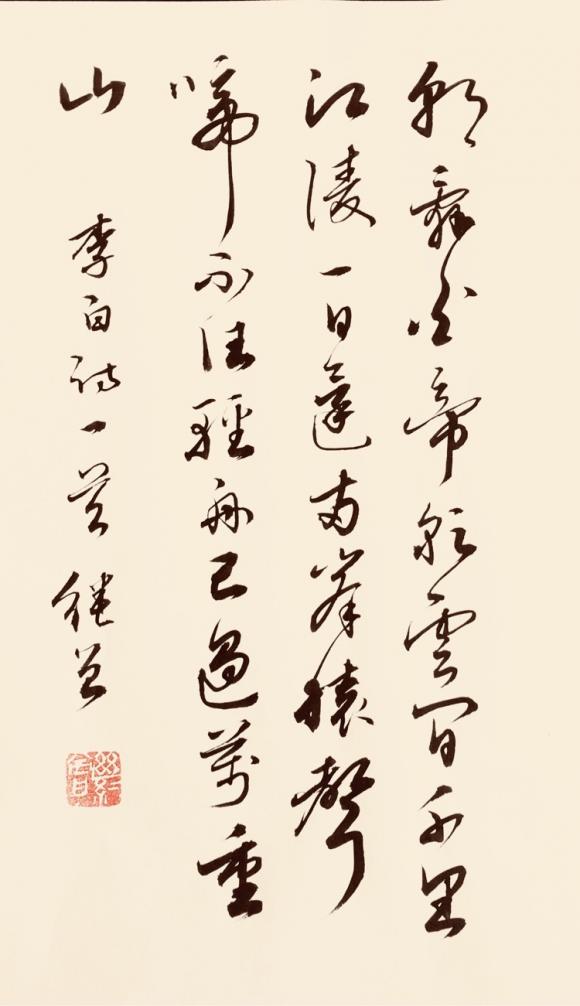 朝辭白帝彩雲間千里
江陵一日還兩岸猿聲
啼不住輕舟已過萬重
山 李白詩一首